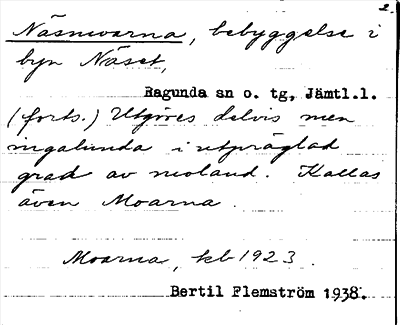 2.
Näsmoarna, bebyggelse i
byn Näset,
Ragunda sn o. tg, Jämtl.l.
(forts.) Utgöres delvis men
i utpräglad
grad av moland. Kallas
även Moarna.
Moarna, kb 1923.
Bertil Flemström 1938.